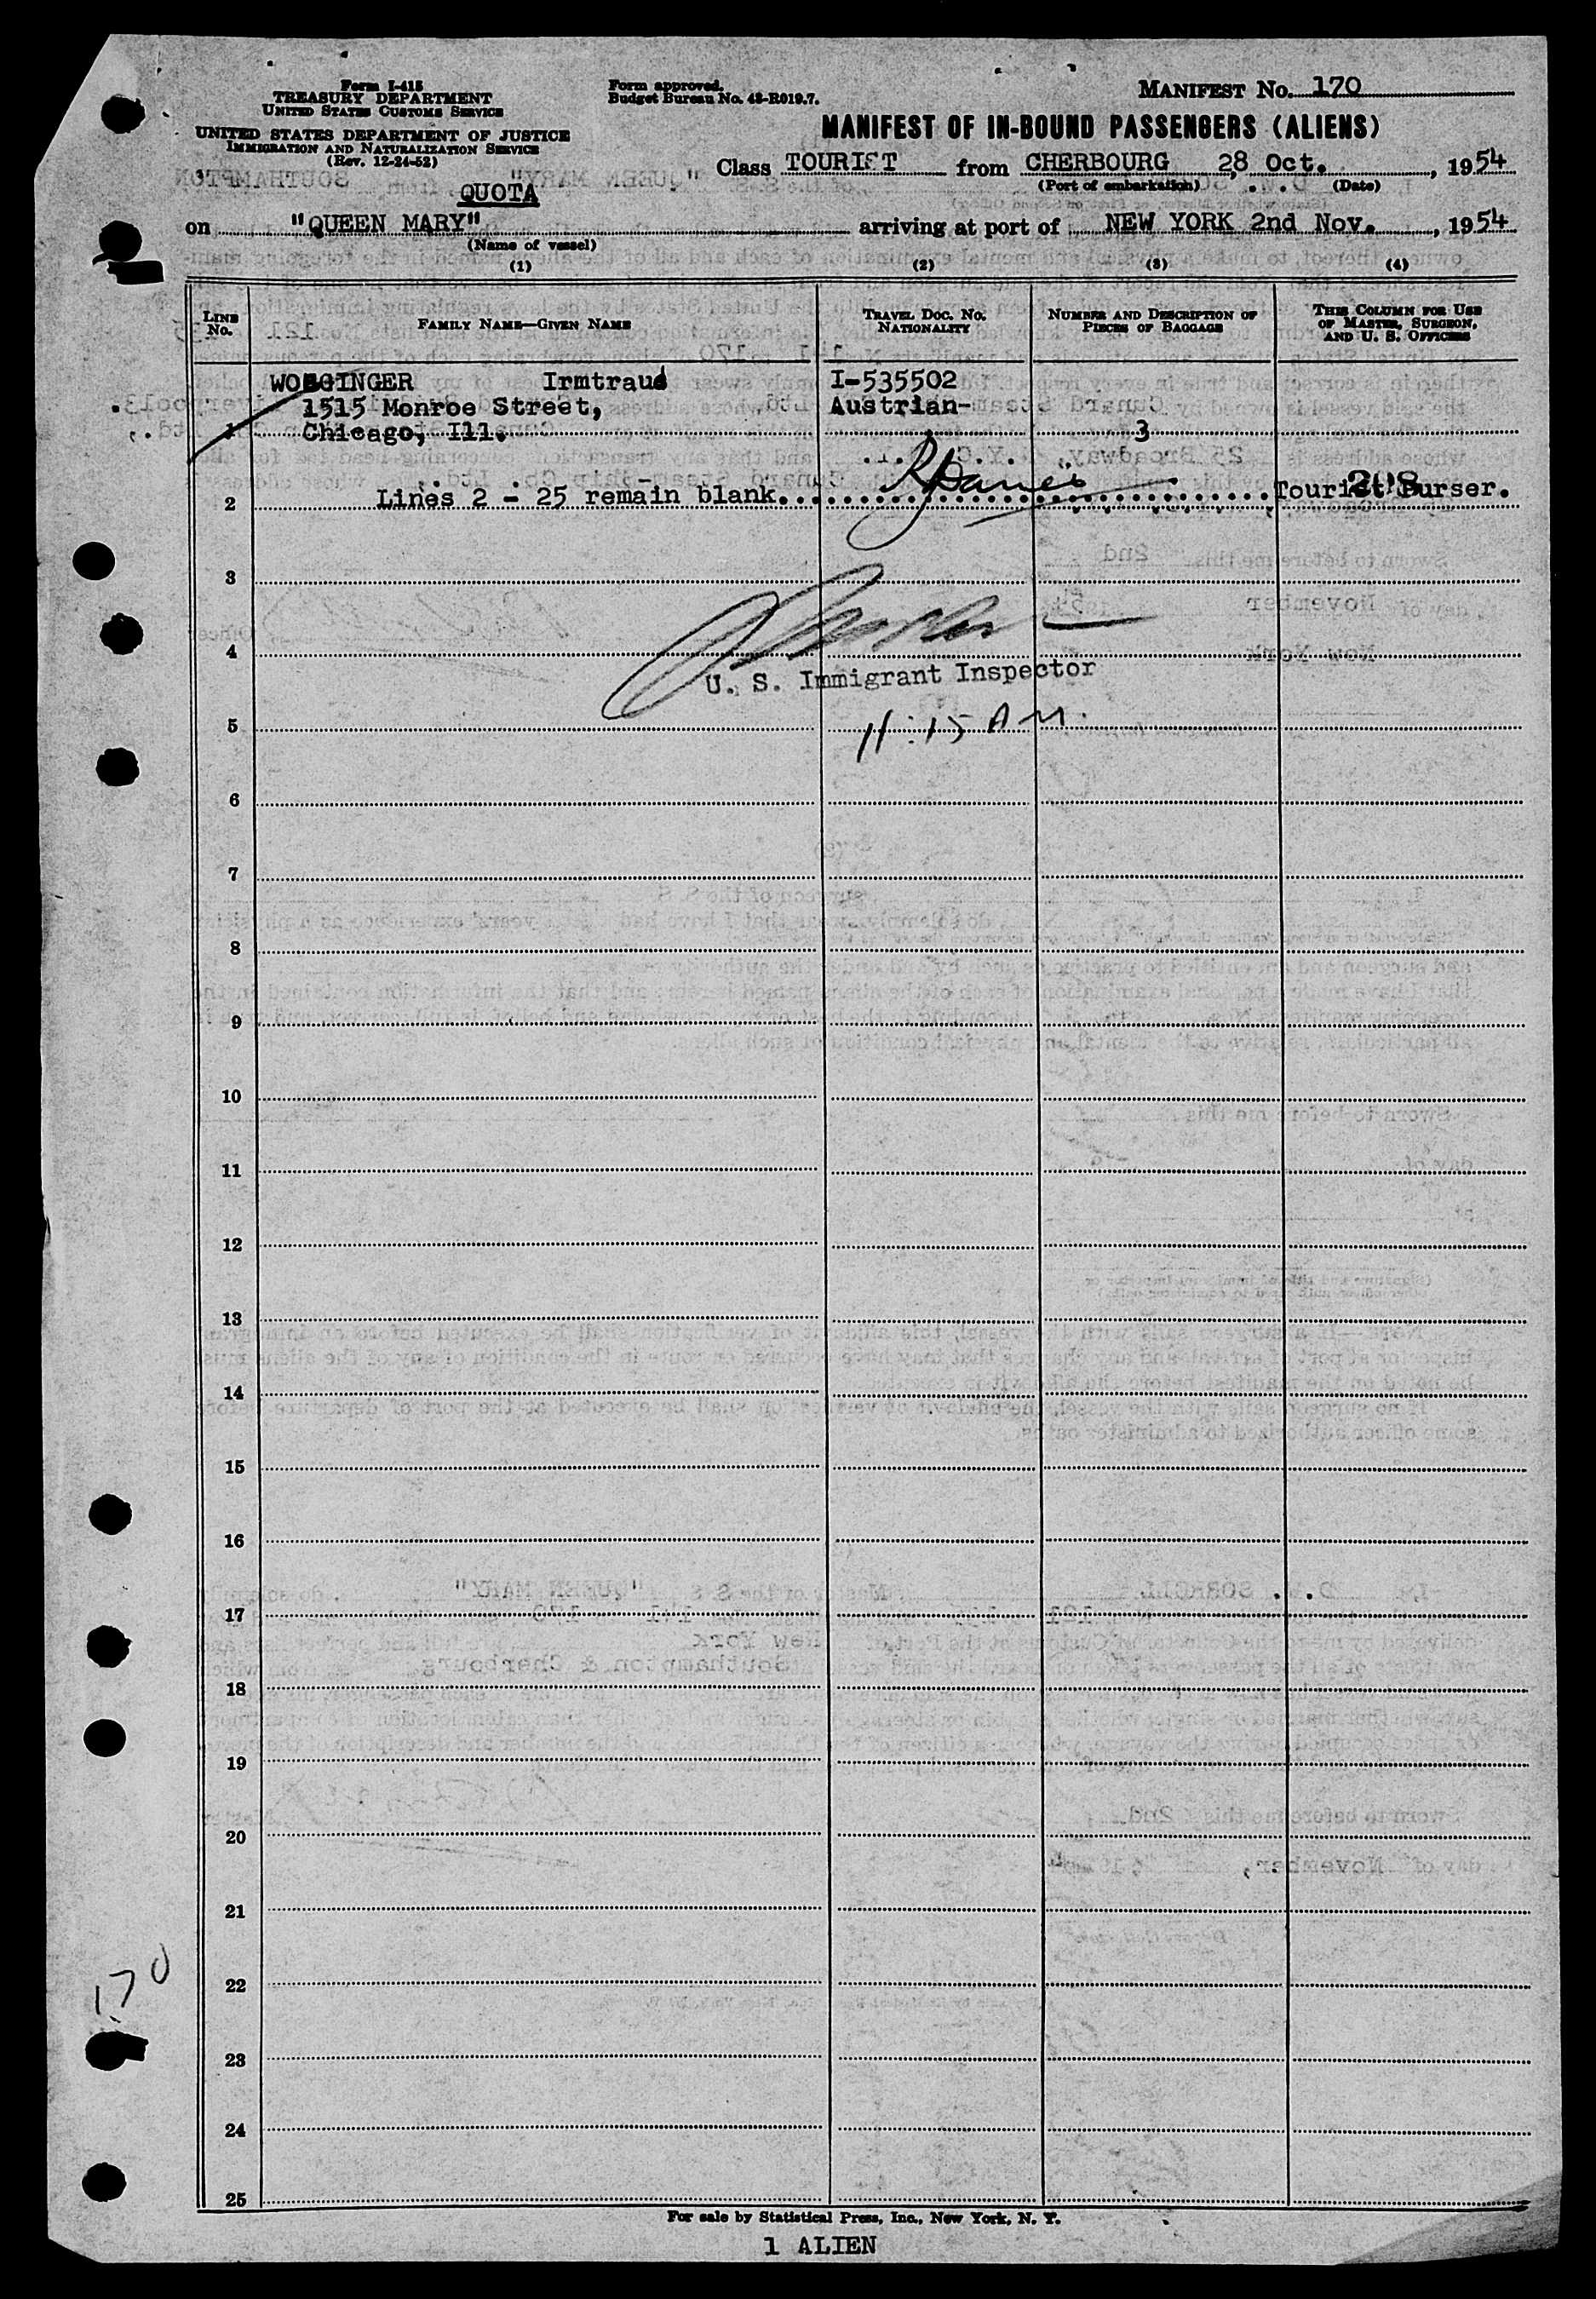 Form I-415
TREASURY DEPARTMENT
UNITED STATES CUSTOMS SERVICE
UNITED STATES DEPARTMENT OF JUSTICE
IMMIGRATION AND NATURALIZATION SERVICE
(Rev. 12-24-52)
Form approved.
Budget Bureau No. 43-R019.7.
MANIFEST No. 170
MANIFEST OF IN-BOUND PASSENGERS (ALIENS)
Class TOURIST from CHERBOURG 28 Oct., 1954
(Port of embarkation) (Date)
QUOTA
on "QUEEN MARY" arriving at port of NEW YORK 2nd Nov., 1954
(Name of vessel)
(1) (2) (3) (4)
LINE No. FAMILY NAME—GIVEN NAME TRAVEL DOC. NO. NATIONALITY NUMBER AND DESCRIPTION OF PIECES OF BAGGAGE THIS COLUMN FOR USE OF MASTER, SURGEON, AND U. S. OFFICERS
Irmtraud I-535502
1515 Monroe Street, Austrian-
1 Chicago, Ill. 3
2 Lines 2 - 25 remain blank. 208 Tourist Purser.
3
4
U. S. Immigrant Inspector
5 11:15 AM.
6
7
8
9
10
11
12
13
14
15
16
17
18
19
20
21
22
170
23
24
25
For sale by Statistical Press, Inc., New York, N. Y.
1 ALIEN